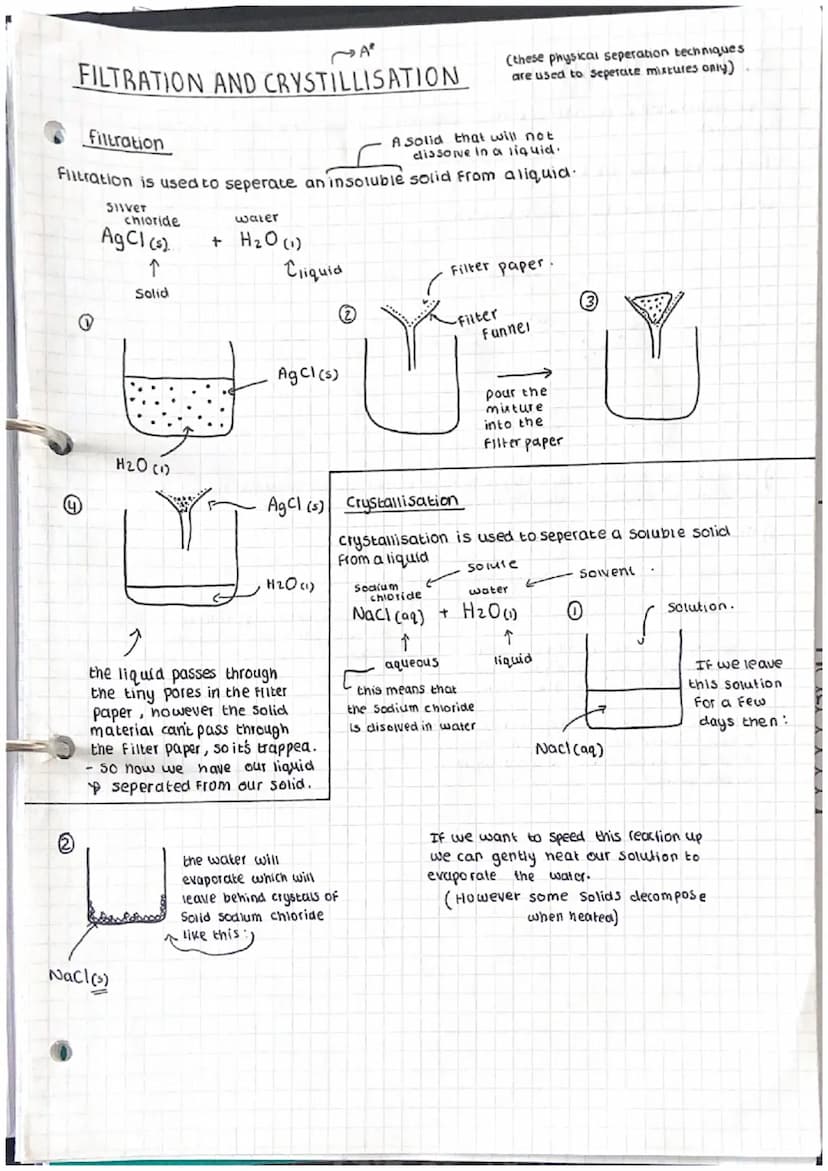 → A*
FILTRATION AND CRYSTILLISATION
(these physical seperation techniques
are used to seperate mixtures only).
filtration
A solid that will not
dissolve in a liquid.
Filtration is used to seperate an insoluble solid from a liquid.
silver
chloride
water
AgCl (s) + H2O (l)
↑
solid
liquid
①
AgCl (s)
H2O (l)
②
Filter paper.
Filter
funnel
→
pour the
mixture
into the
filter paper
③
④
AgCl (s)
H2O (l)
the liquid passes through
the tiny pores in the filter
paper, however the solid
material can't pass through
the filter paper, so it's trapped.
- so now we have our liquid
seperated from our solid.
Crystallisation
crystallisation is used to seperate a soluble solid
from a liquid
solute
solvent.
sodium
chloride
water
NaCl (aq) + H2O (l)
↑ ↑
aqueous liquid
this means that
the sodium chloride
is disolved in water
①
solution.
NaCl (aq)
If we leave
this solution
for a few
days then:
②
NaCl (s)
the water will
evaporate which will
leave behind crystals of
solid sodium chloride
like this:
If we want to speed this reaction up
we can gently heat our solution to
evaporate the water.
(However some solids decompose
when heated)